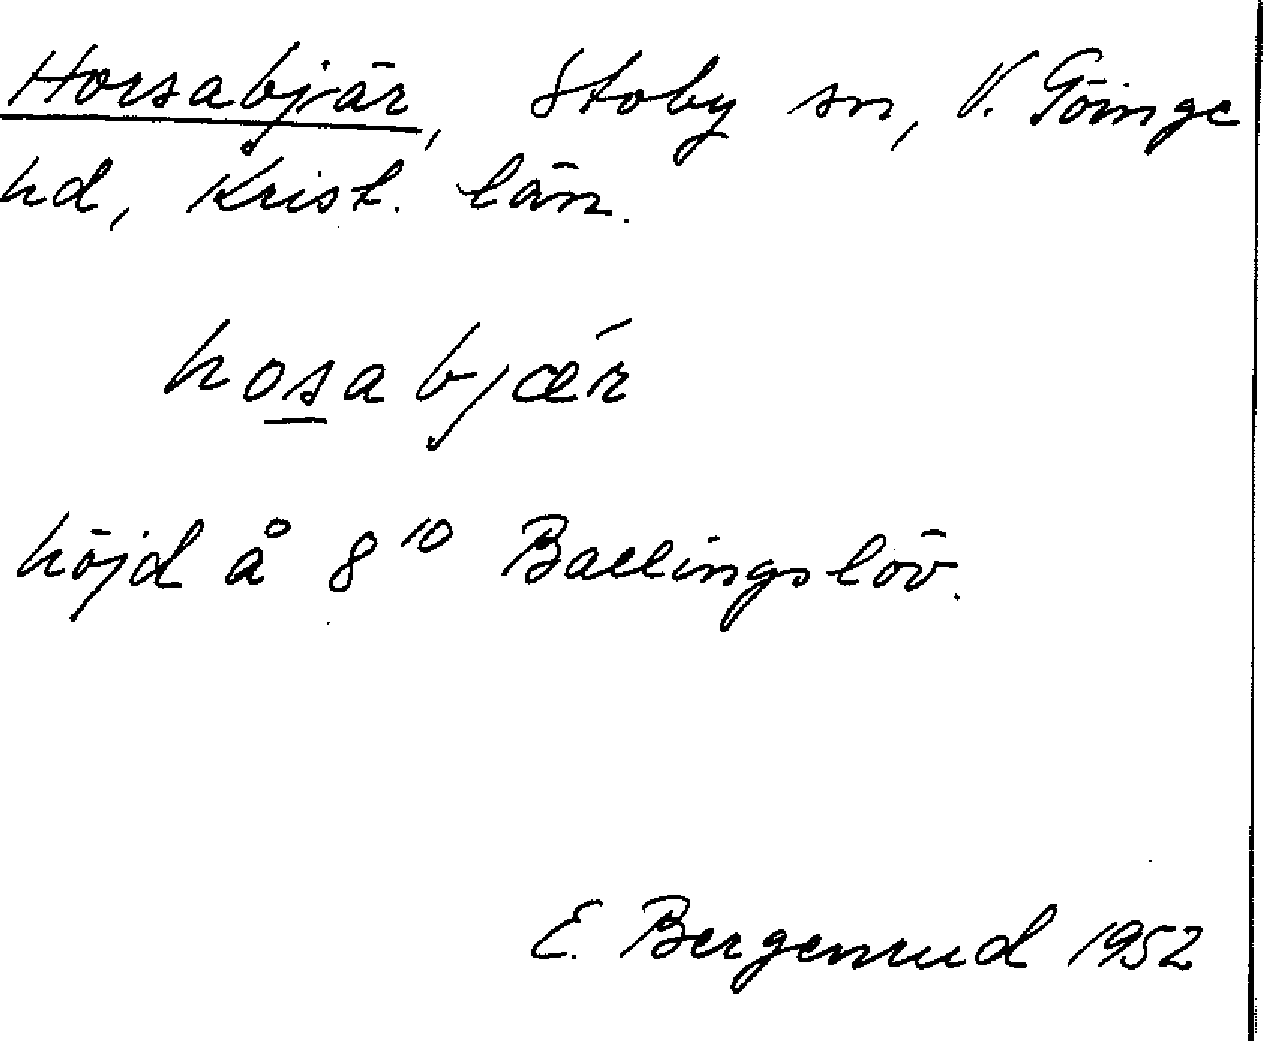 Horsabjär, Stoby sn, V. Göinge
hd, Krist. län.
hosabjǽr
höjd å 8¹⁰ Ballingslöv.
E. Bergenrud 1952